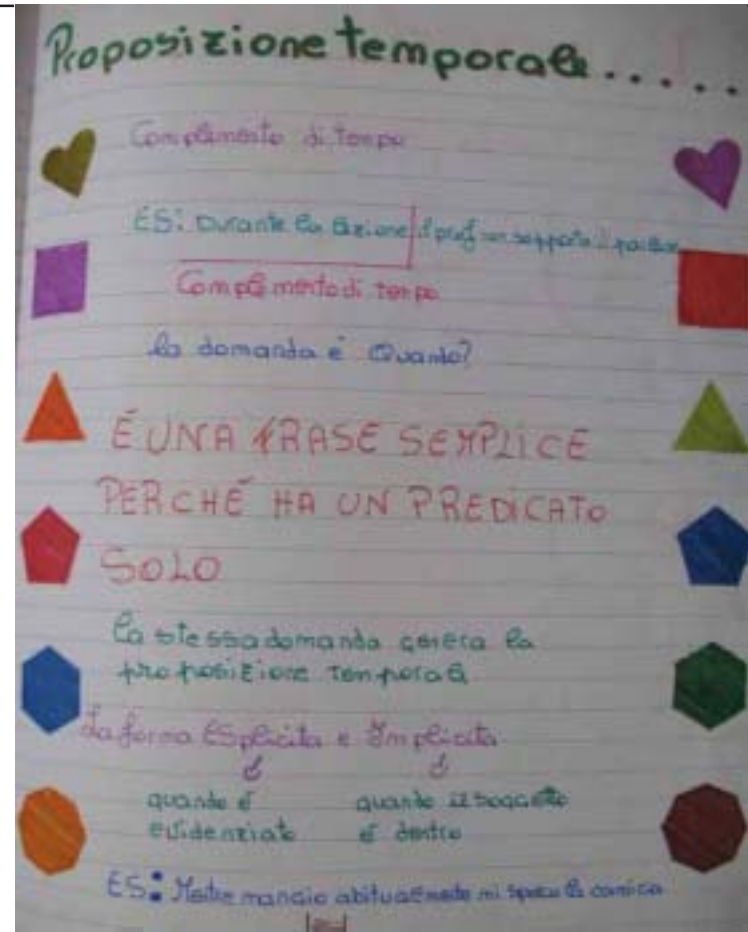 Proposizione temporale.....
Complemento di tempo
ES: Durante la lezione il prof non sopporta il parlare
Complemento di tempo
la domanda è Quando?
É UNA FRASE SEMPLICE
PERCHÉ HA UN PREDICATO
SOLO
la stessa domanda genera la
proposizione temporale
La forma ESplicita e Implicita
quando é quando il soggetto
evidenziato é dentro
ES: Mentre mangio abitualmente mi sporco la camicia